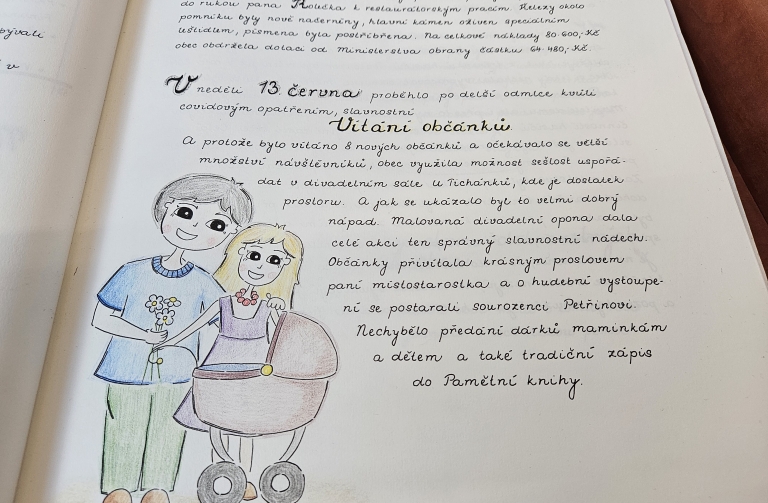 ývali
v
do rukou pana Houčka k restaurátorským pracím. Železy okolo
pomníku byly nově načerněny, hlavní kámen oživen speciálním
leštidlem, písmena byla postříbřena. Na celkové náklady 80 600,-Kč
obec obdržela dotaci od Ministerstva obrany částku 64 480,-Kč.
V neděli 13 června proběhlo po delší odmlce kvůli
covidovým opatřením, slavnostní
Vítání občánků
A protože bylo vítáno 8 nových občánků a očekávalo se větší
množství návštěvníků, obec využila možnost sešlost uspořá-
dat v divadelním sále U Tichánků, kde je dostatek
prostoru. A jak se ukázalo byl to velmi dobrý
nápad. Malovaná divadelní opona dala
celé akci ten správný slavnostní nádech.
Občánky přivítala krásným proslovem
paní místostarostka a o hudební vystoupe-
ní se postarali sourozenci Petřinovi.
Nechybělo předání dárků maminkám
a dětem a také tradiční zápis
do Pamětní knihy.